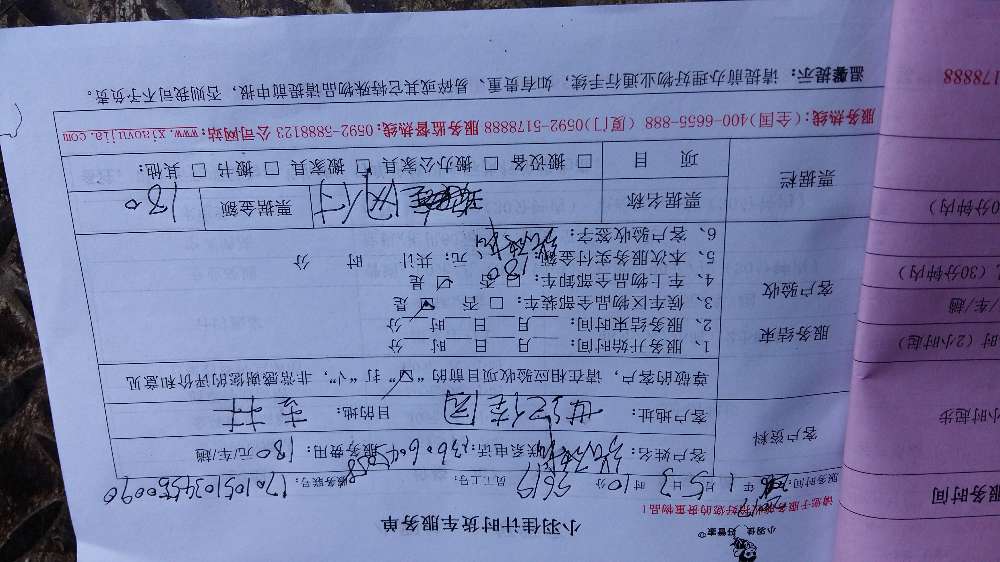 小羽佳 好管家
小羽佳计时货车服务单
请您于服务前收好您的贵重物品!
服务时间: 年1月5日3时10分 员工工号: 5619 服务账号: 17010510345580090
客户资料
客户姓名: 联系电话: 服务费用: 180元/车/趟
客户地址: 世纪佳园 目的地: 杏林
尊敬的客户, 请在相应验收项目前的“☑”打“√”, 非常感谢您的评价和意见
服务结束
客户验收
1、服务开始时间: 月 日 时 分
2、服务结束时间: 月 日 时 分
3、候车区物品全部装车: □ 否 ☑ 是
4、车上物品全部卸车: □ 否 ☑ 是
5、本次服务实付金额: 180 元; 共计 时 分
6、客户验收签字:
票据栏
票据名称 票据金额 180
项 目 □ 搬设备 □ 搬办公家具 □ 搬家具 □ 搬书 □ 其他:
服务热线:(全国)400-6655-888 (厦门)0592-5178888 服务监督热线:0592-5888123 公司网站:www.xiaoyujia.com
温馨提示: 请提前办理好物业通行手续, 如有贵重、易碎或其它特殊物品请提前申报, 否则我司不予负责。
服务时间
小时起步
时 (2小时起)
/车/趟
(30分钟内)
0分钟内)
178888